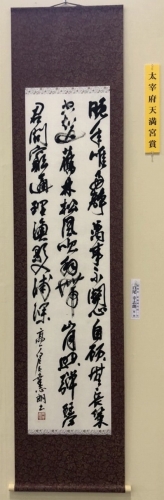 晩年唯好靜萬事不關心自顧無長策
空知返舊林松風吹解帶山月照彈琴
君問窮通理漁歌入浦深
太宰府天満宮賞